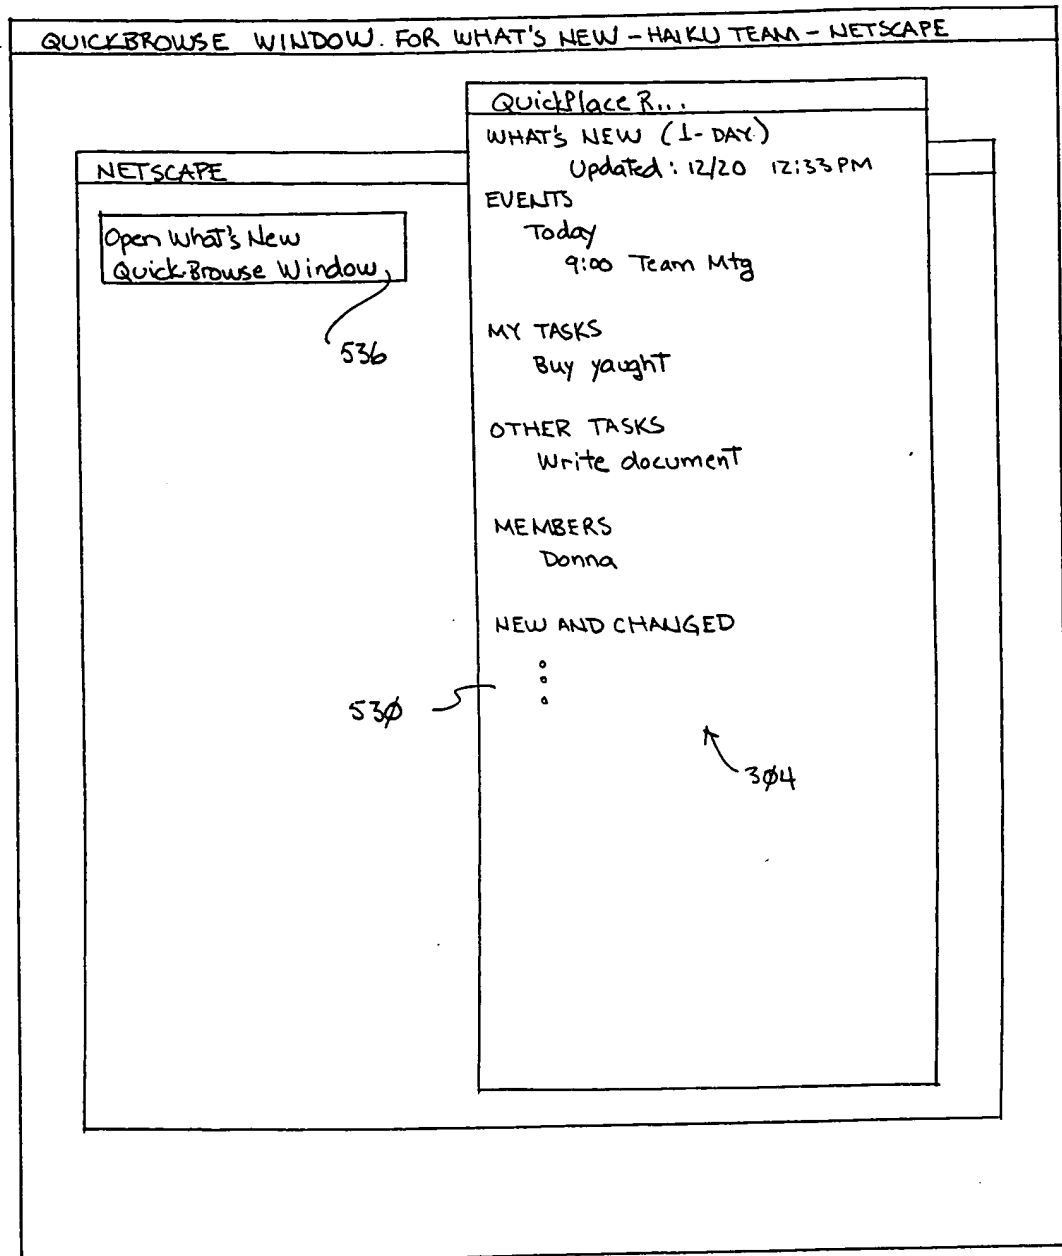 QUICKBROWSE WINDOW. FOR WHAT'S NEW - HAIKU TEAM - NETSCAPE
NETSCAPE
Open What's New
QuickBrowse Window
536
QuickPlace R...
WHAT'S NEW (1-DAY)
Updated: 12/20 12:33PM
EVENTS
Today
9:00 Team Mtg
MY TASKS
Buy yaught
OTHER TASKS
Write document
MEMBERS
Donna
NEW AND CHANGED
530
304